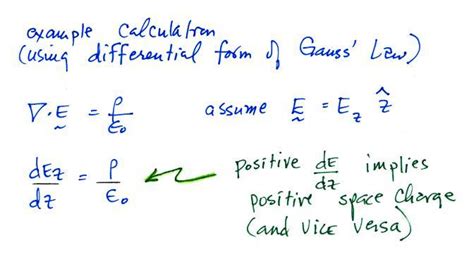 example calculation
(using differential form of Gauss' Law)
∇·Ḛ = ρ/ε₀ assume Ḛ = E_z ẑ
dE_z/dz = ρ/ε₀ positive dE/dz implies
positive space charge
(and vice versa)